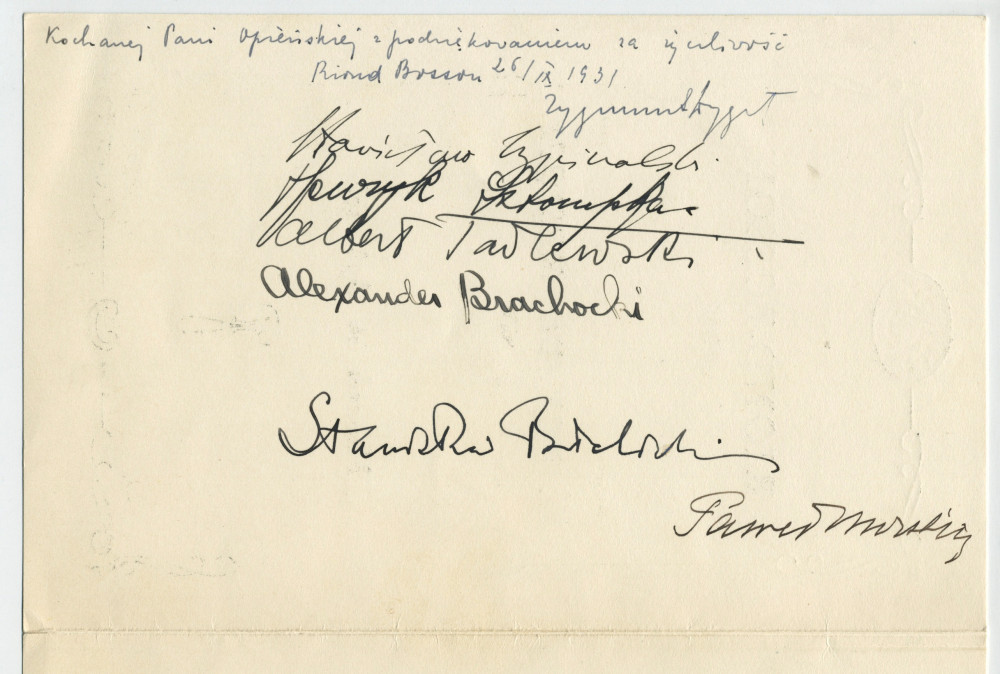 Kochanej Pani Opieńskiej z podziękowaniem za życzliwość
Riond Bosson 26/IX 1931
Zygmunt Dygat
Stanisław Szpinalski
Henryk Sztompka
Albert Tadlewski
Alexander Brachocki
Stanisław
Paweł